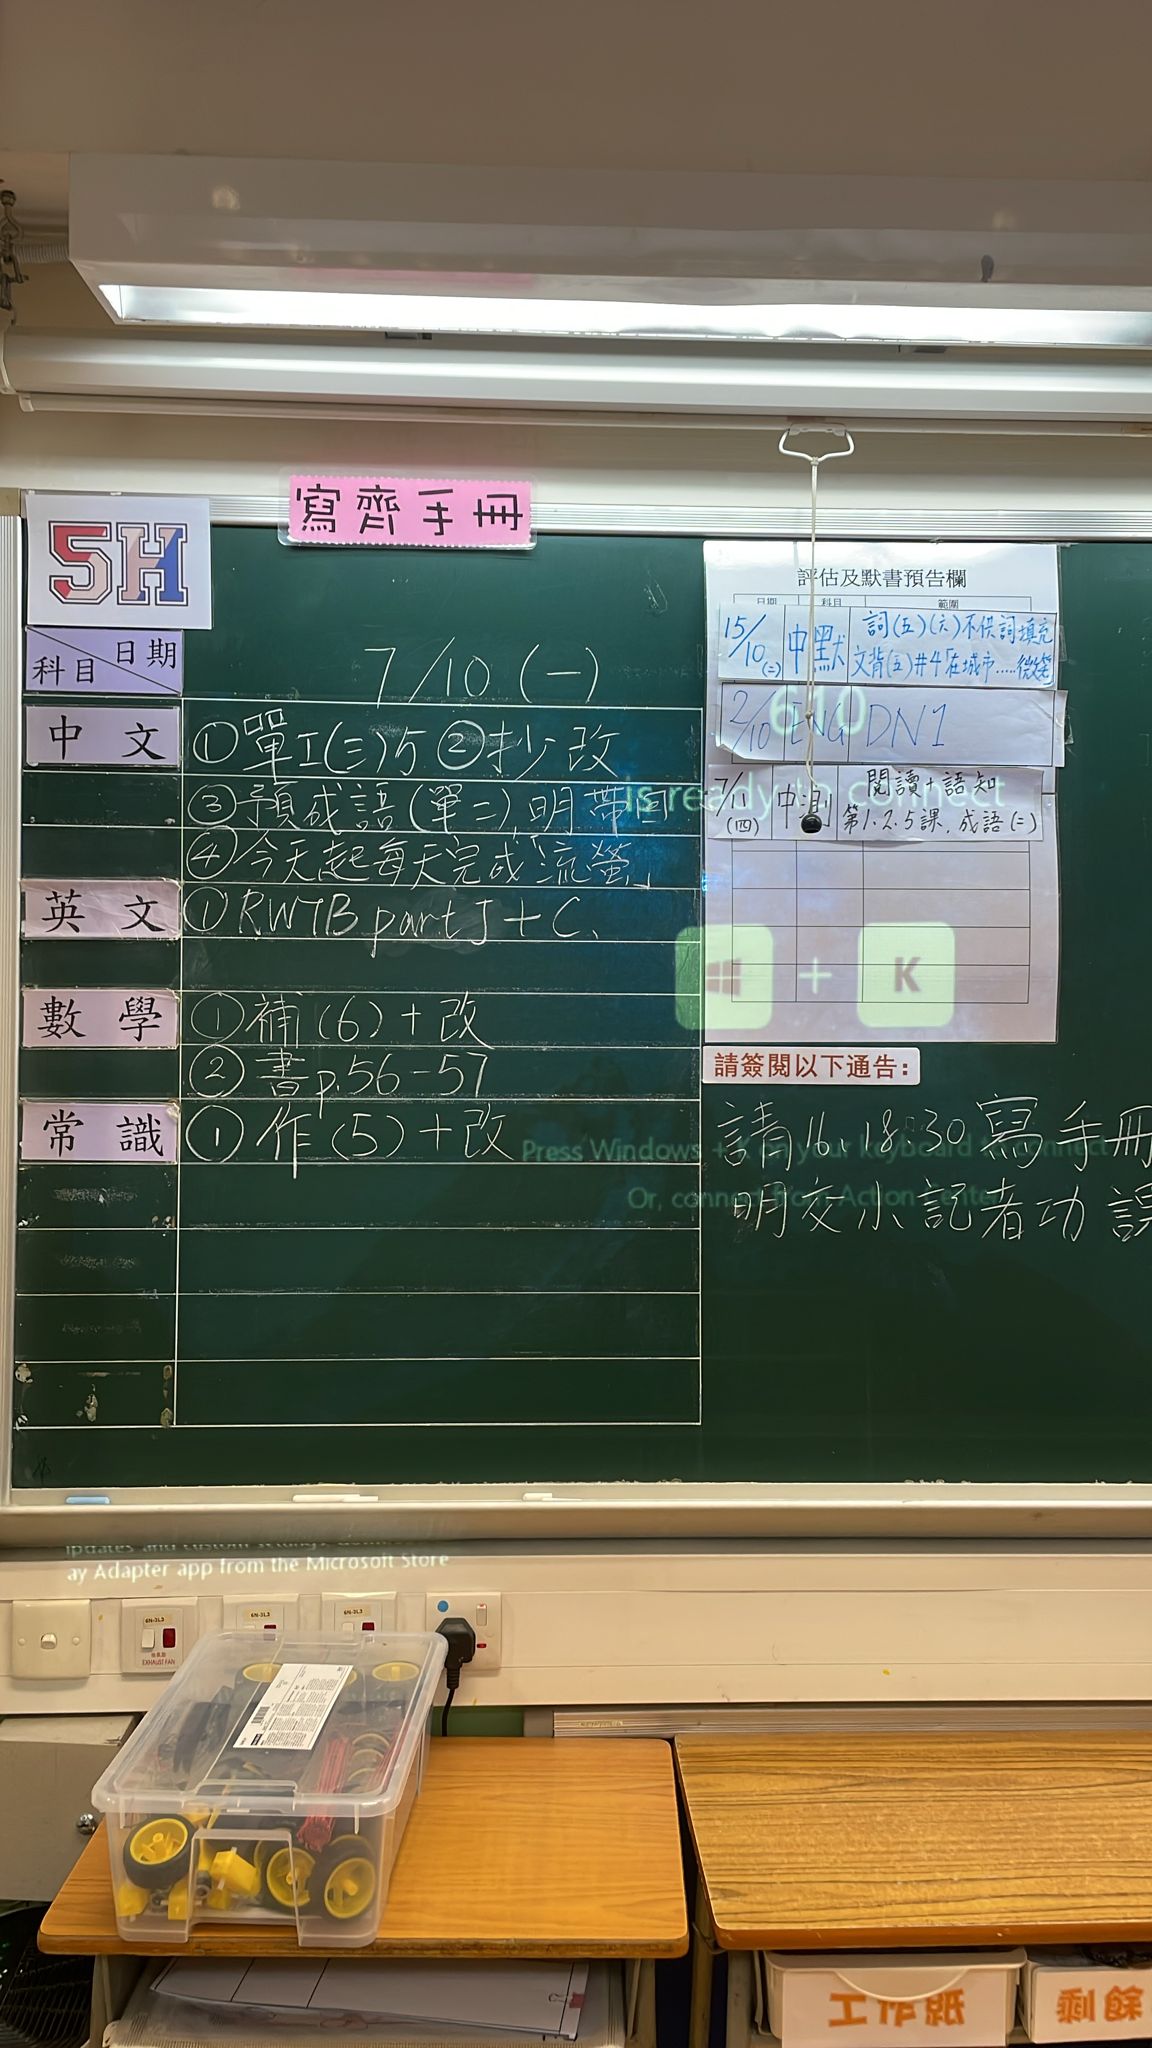 寫齊手冊
5H
日期
科目
7/10 (一)
中文
①單工(三)5 ②抄改
③預成語(單二)明帶回
④今天起每天完成「流螢」
英文
①RWTB part J + C
數學
①補(6)+改
②書p.56-57
常識
①作(5)+改
評估及默書預告欄
日期 科目 範圍
15/10(二) 中默 詞(五)(六)不供詞填充
文背(五)#4「在城市.....微笑」
2/10 ENG DN1
610
7/11(四) 中測 閱讀+語知
第1.2.5課,成語(二)
Is ready to connect
+ K
請簽閱以下通告:
請16 18 30 寫手冊
明交小記者功課
Press Windows + K on your keyboard to connect
Or, connect from Action Center
updates and custom settings
ay Adapter app from the Microsoft Store
6N-3L3
6N-3L3
6N-3L3
EXHAUST FAN
工作紙
剩餘